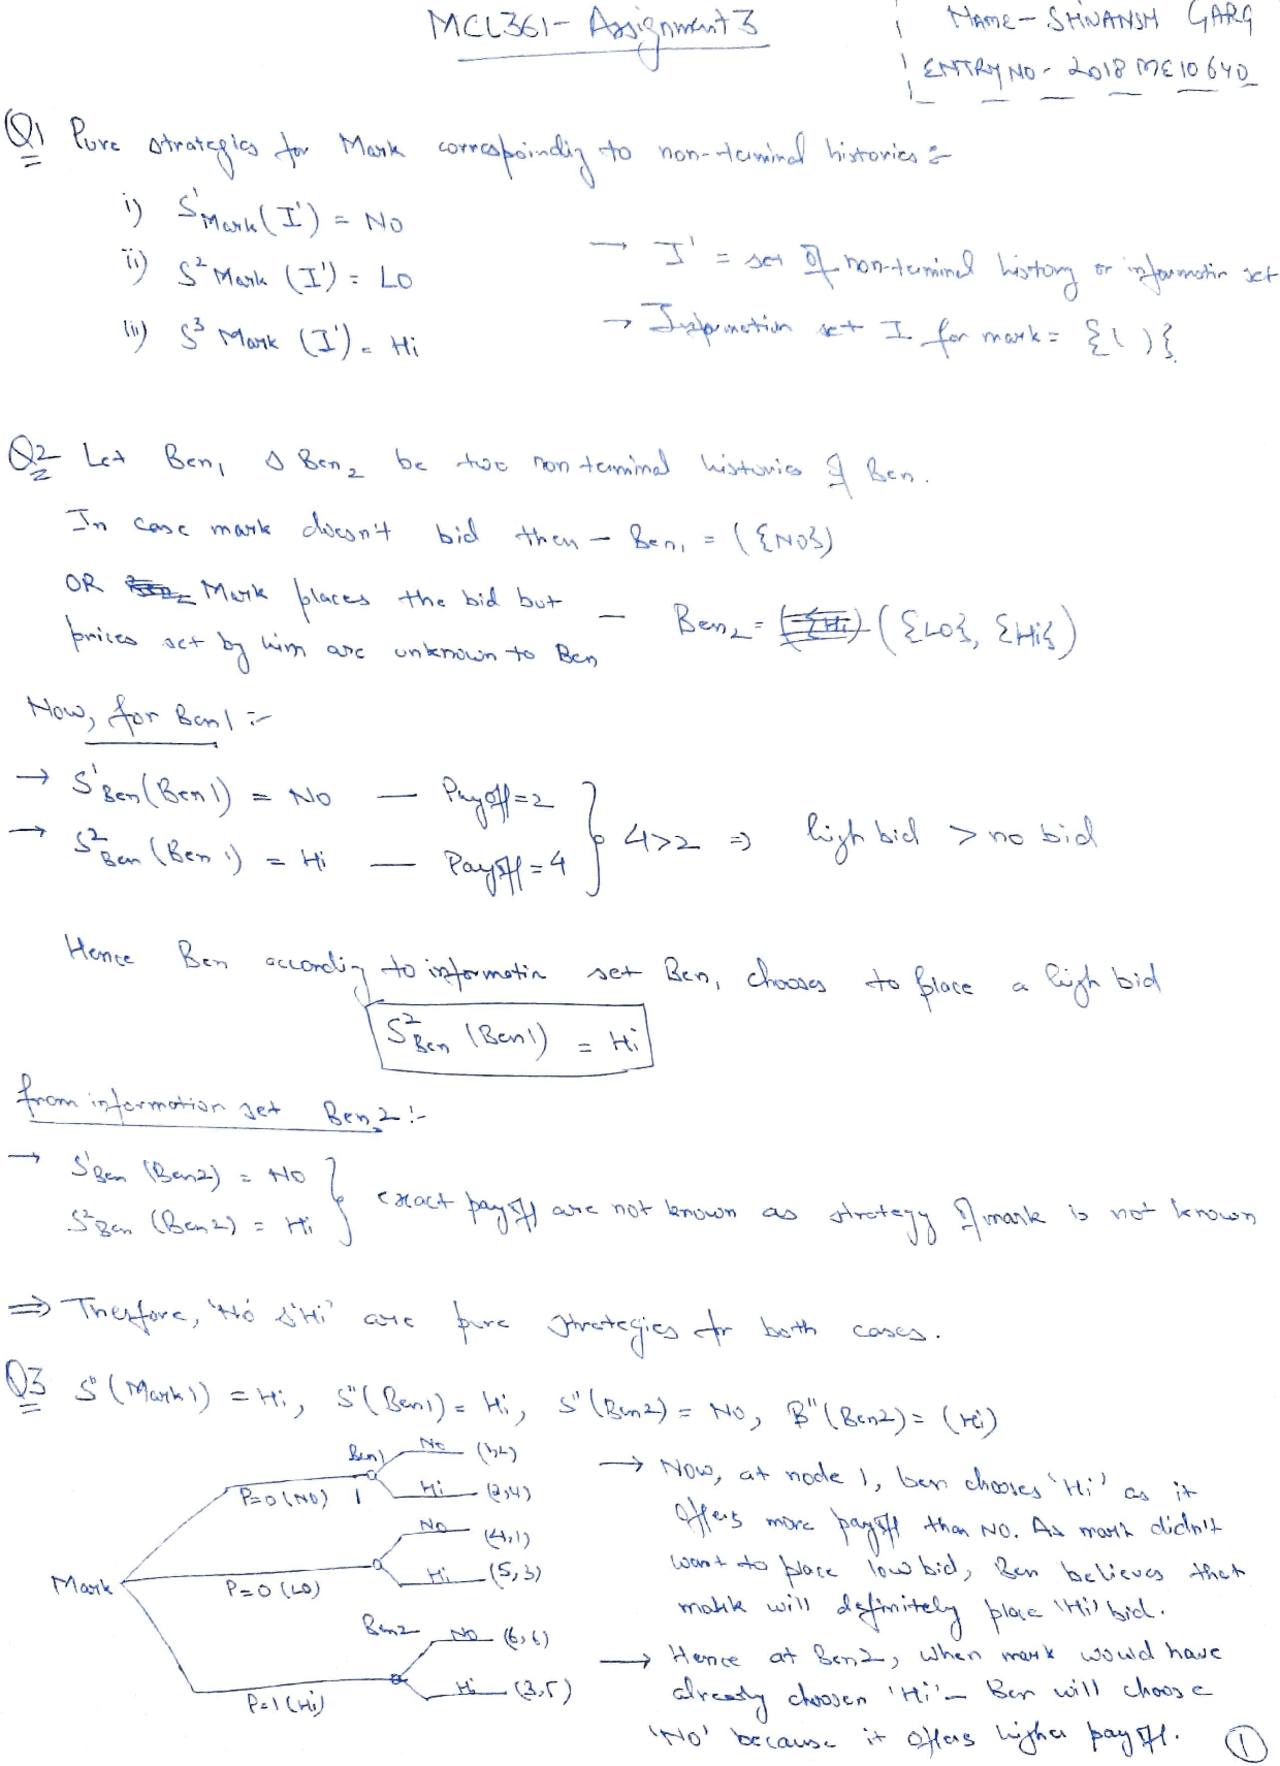 MCL361- Assignment 3
NAME - SHIVANSH GARG
ENTRY NO - 2018ME10640
Q1 Pure strategies for Mark correspoindig to non-terminal histories :-
i) S¹Mark(I') = NO
ii) S² Mark (I') = LO
iii) S³ Mark (I') = Hi
→ I' = set of non-terminal history or informatin set
→ Information set I for mark = {( )}
Q2 Let Ben₁ & Ben₂ be two non terminal histories of Ben.
In case mark doesn't bid then - Ben₁ = ({NO})
OR Mark places the bid but
prices set by him are unknown to Ben
- Ben₂ = ({LO}, {Hi})
Now, for Ben1 :-
→ S¹Ben(Ben1) = NO — Payoff=2
→ S²Ben (Ben1) = Hi — Payoff=4
4>2 ⇒ high bid > no bid
Hence Ben accordig to informatin set Ben₁ chooses to place a high bid
S²Ben (Ben1) = Hi
from information set Ben2 :-
→ S¹Ben (Ben2) = NO
S²Ben (Ben2) = Hi
exact payoff are not known as strategy of mark is not known
⇒ Therfore, 'NO' & 'Hi' are pure strategies for both cases.
Q3 S''(Mark1) = Hi, S''(Ben1) = Hi, S''(Ben2) = NO, B''(Ben2) = (Hi)
Ben1 NO
P=0 (NO) 1 Hi (2,4)
NO (4,1)
Mark P=0 (LO) Hi (5,3)
Ben2 NO (6,6)
P=1 (Hi) Hi (3,5)
→ Now, at node 1, ben chooses 'Hi' as it
offers more payoff than NO. As mark didn't
want to place low bid, Ben believes that
mark will definitely place 'Hi' bid.
→ Hence at Ben2, when mark would have
already choosen 'Hi' - Ben will choose
'NO' because it offers higher payoff.
1